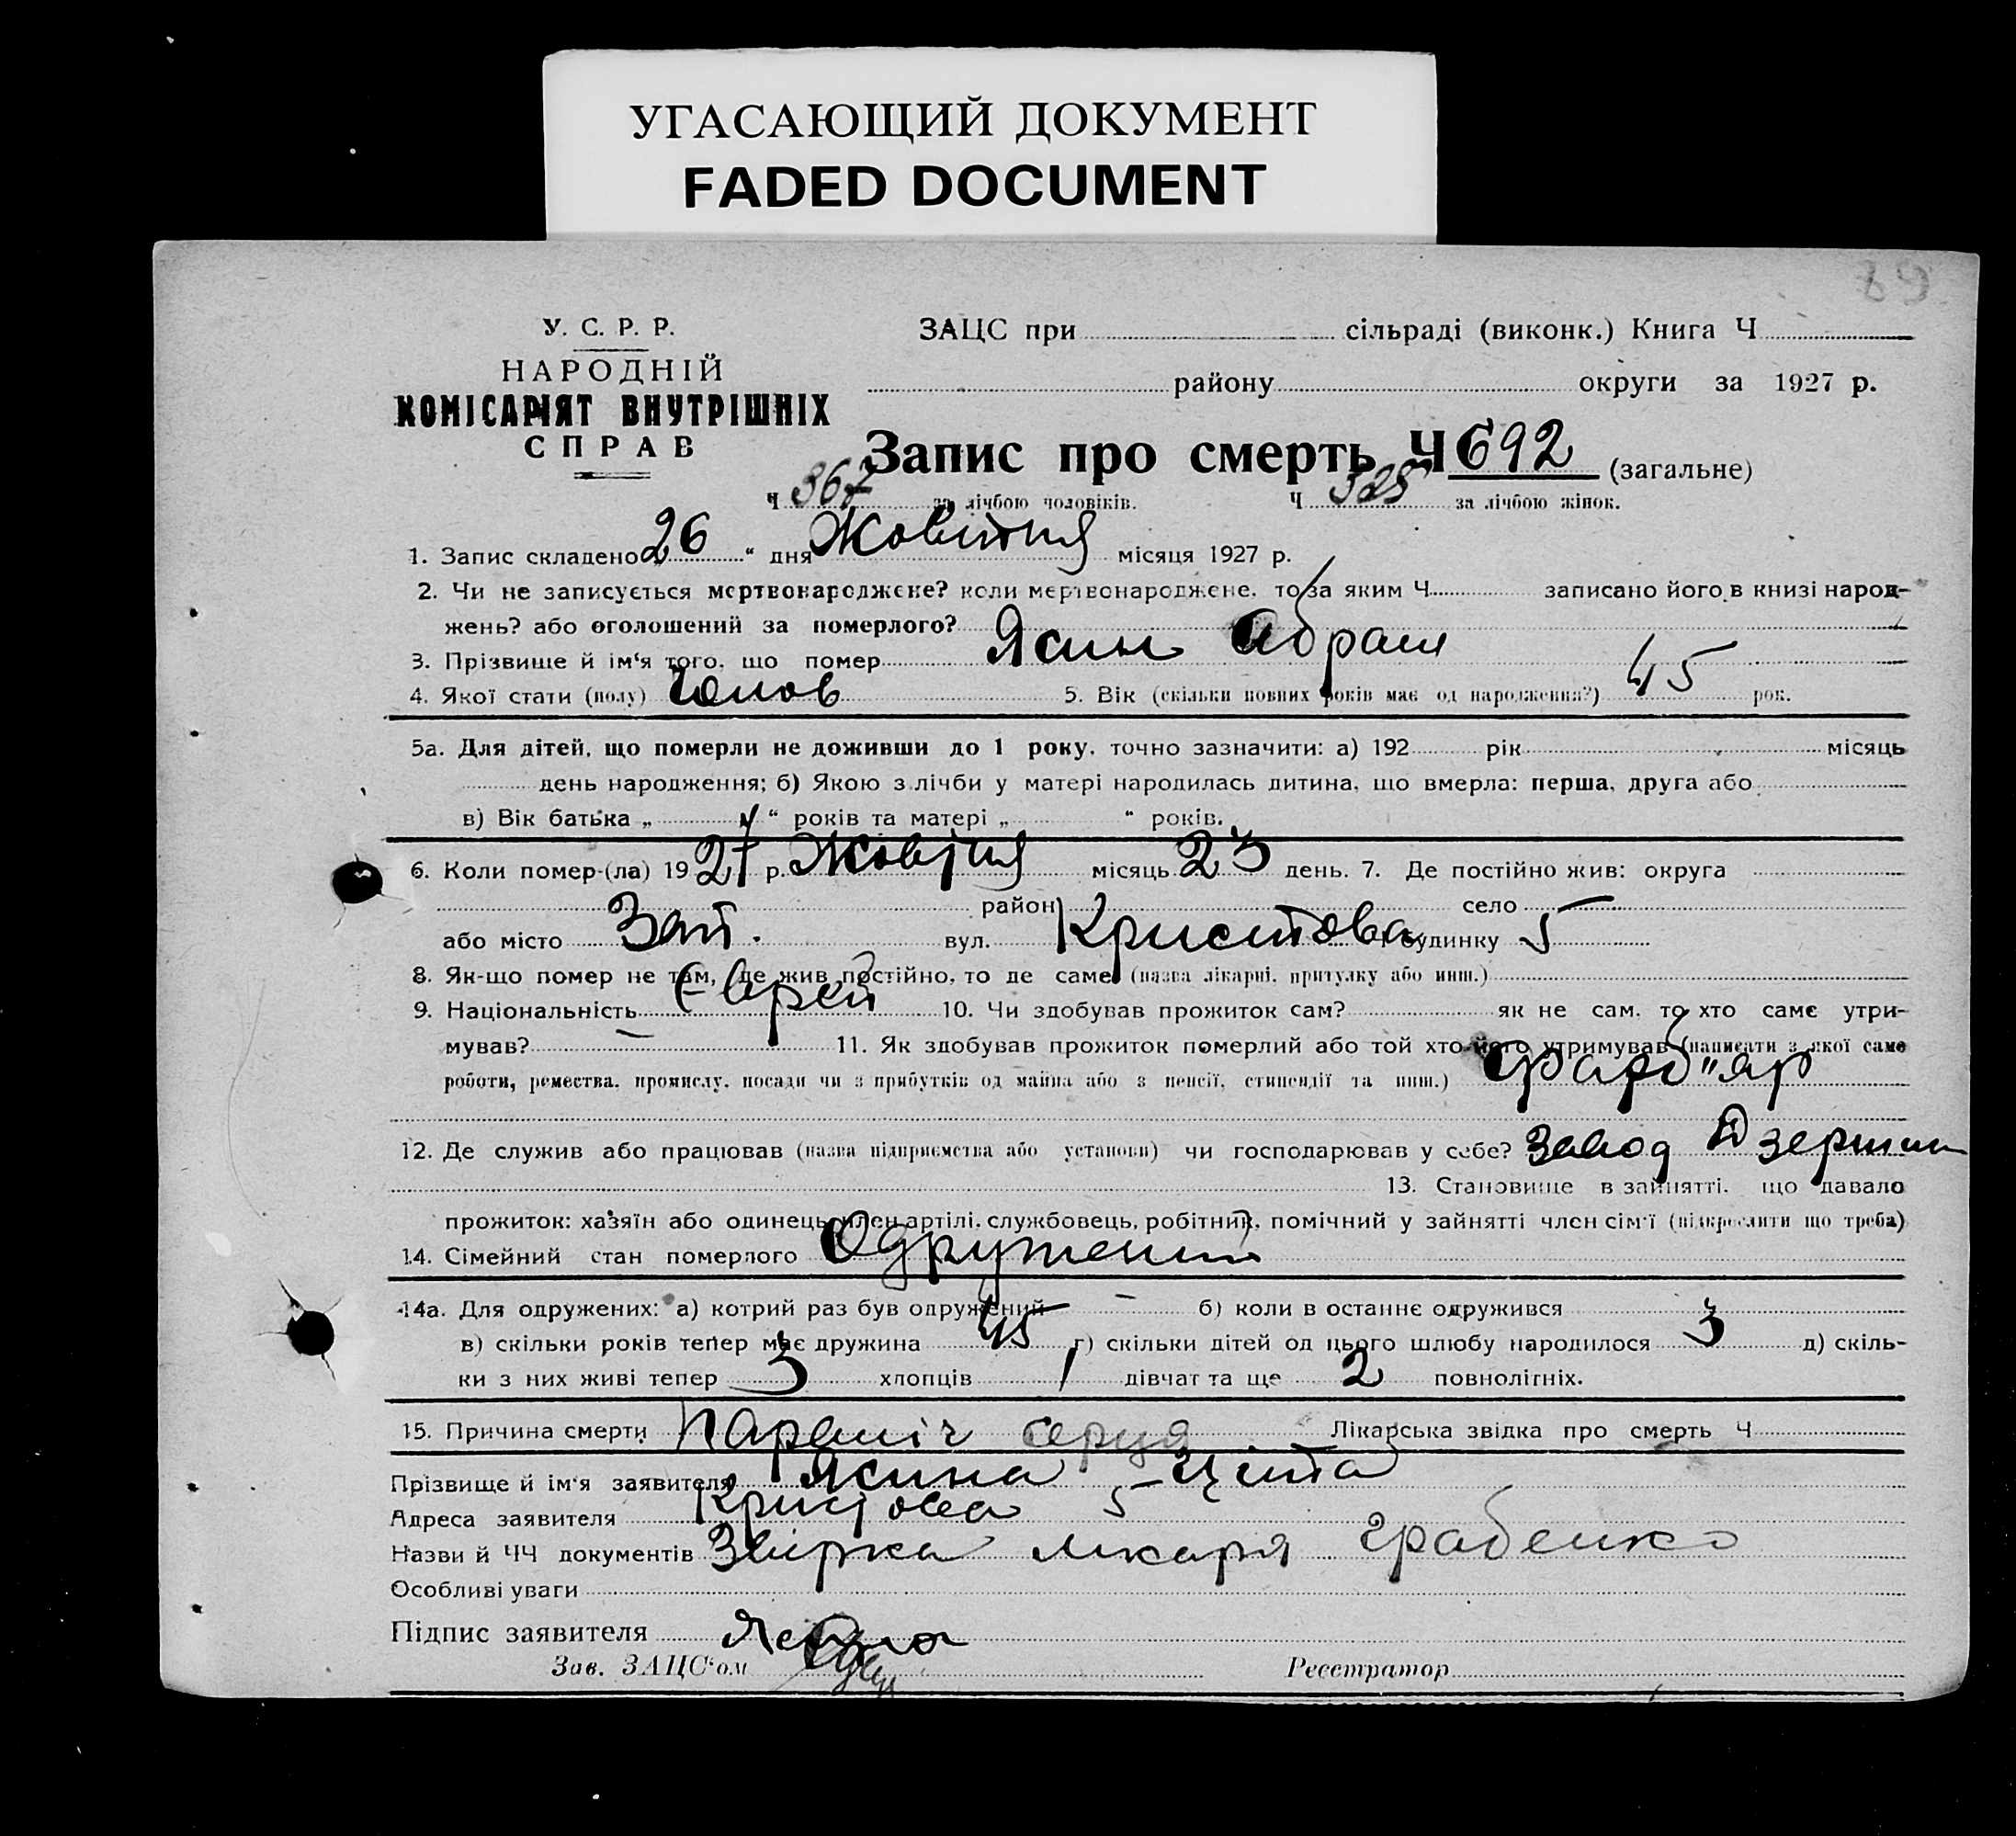 УГАСАЮЩИЙ ДОКУМЕНТ
FADED DOCUMENT
89
У. С. Р. Р.
НАРОДНІЙ
КОМІСАРІЯТ ВНУТРІШНІХ
СПРАВ
ЗАЦС при сільраді (виконк.) Книга Ч
району округи за 1927 р.
Запис про смерть Ч 692 (загальне)
Ч 367 за лічбою чоловіків. Ч 325 за лічбою жінок.
1. Запис складено „26“ дня Жовтня місяця 1927 р.
2. Чи не записується мертвонароджене? коли мертвонароджене, то за яким Ч записано його в книзі народ-
жень? або оголошений за померлого?
3. Прізвище й ім‘я того, що помер Ясин Абрам
4. Якої стати (полу) Чолов 5. Вік (скільки повних років має од народження?) 45 рок.
5а. Для дітей, що померли не доживши до 1 року, точно зазначити: а) 192 рік місяць
день народження; б) Якою з лічби у матері народилась дитина, що вмерла: перша, друга або
в) Вік батька „ “ років та матері „ “ років.
6. Коли помер-(ла) 1927 р. Жовтня місяць 23 день. 7. Де постійно жив: округа
район село
або місто Зап. вул. Кристова будинку 5
8. Як-що помер не там, де жив постійно, то де саме (назва лікарні, притулку або инш.)
9. Національність Єврей 10. Чи здобував прожиток сам? як не сам, то хто саме утри-
мував? — 11. Як здобував прожиток померлий або той хто його утримував (написати з якої саме
роботи, ремества, промислу, посади чи з прибутків од майна або з пенсії, стипендії та инш.) Фарб"яр
12. Де служив або працював (назва підприємства або установи) чи господарював у себе? Завод Дзержин
13. Становище в зайнятті, що давало
прожиток: хазяїн або одинець, член артілі, службовець, робітник, помічний у зайнятті член сім‘ї (підкреслити що треба)
14. Сімейний стан померлого Одружений
14а. Для одружених: а) котрий раз був одружений — б) коли в останнє одружився
в) скільки років тепер має дружина 45 г) скільки дітей од цього шлюбу народилося 3 д) скіль-
ки з них живі тепер 3 хлопців 1 дівчат та ще 2 повнолітніх.
15. Причина смерти Параліч серця Лікарська звідка про смерть Ч
Прізвище й ім‘я заявителя Ясина Цита
Адреса заявителя Кристова 5
Назви й ЧЧ документів Звірка лікаря Грабенко
Особливі уваги
Підпис заявителя Ясина
Зав. ЗАЦС‘ом Реєстратор